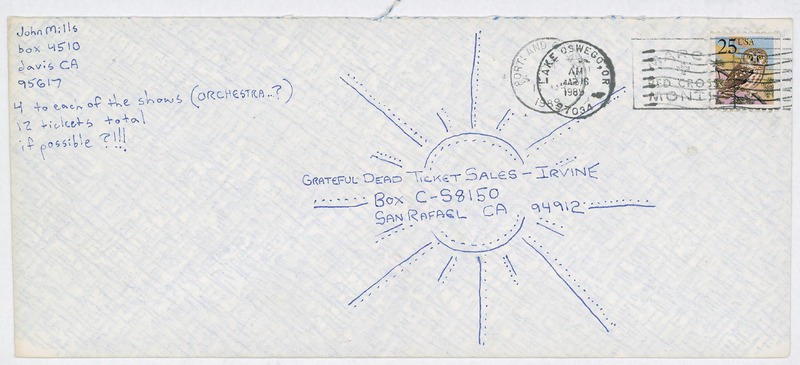 John Mills
box 4510
davis CA
95617
4 to each of the shows (ORCHESTRA..?)
12 tickets total
if possible ?!!!
PORTLAND
LAKE OSWEGO, OR
AM
1989
97034
25 USA
RED CROSS
MONTH
GRATEFUL DEAD TICKET SALES - IRVINE
BOX C-S8150
SAN RAFAEL CA 94912